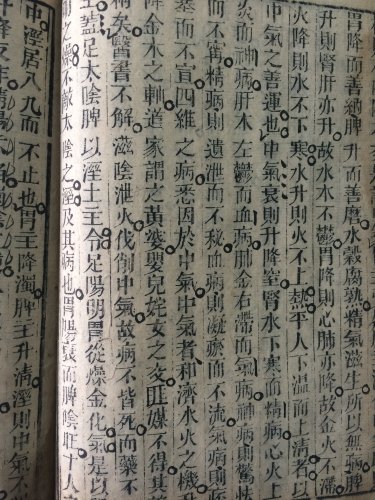 胃降而善納脾升而善磨水穀腐熟精氣滋生所以無病脾
升則腎肝亦升故水木不鬱胃降則心肺亦降故金火不
降則水不下寒水升則火不上熱平人下溫而上清者以
中氣之善運也中氣衰則升降窒腎水下寒而精病心火上
炎而神病肝木左鬱而血病肺金右滯而氣病神病則驚怯
而不寧精病則遺泄而不秘血病則凝瘀而不流氣病則
塞而不宣四維之病悉因於中氣中氣者和濟水火之機
降金木之軸道家謂之黃婆嬰兒姹女之交非媒不得其
精矣醫書不解滋陰泄火伐削中氣故病不皆死而藥不
生蓋足太陰脾以溼土主令足陽明胃從燥金化氣是以
明之燥不敵太陰之溼及其病也胃陽衰而脾陰旺十人
中溼居八九而不止也胃主降濁脾主升清溼則中氣不
升降反作清陽